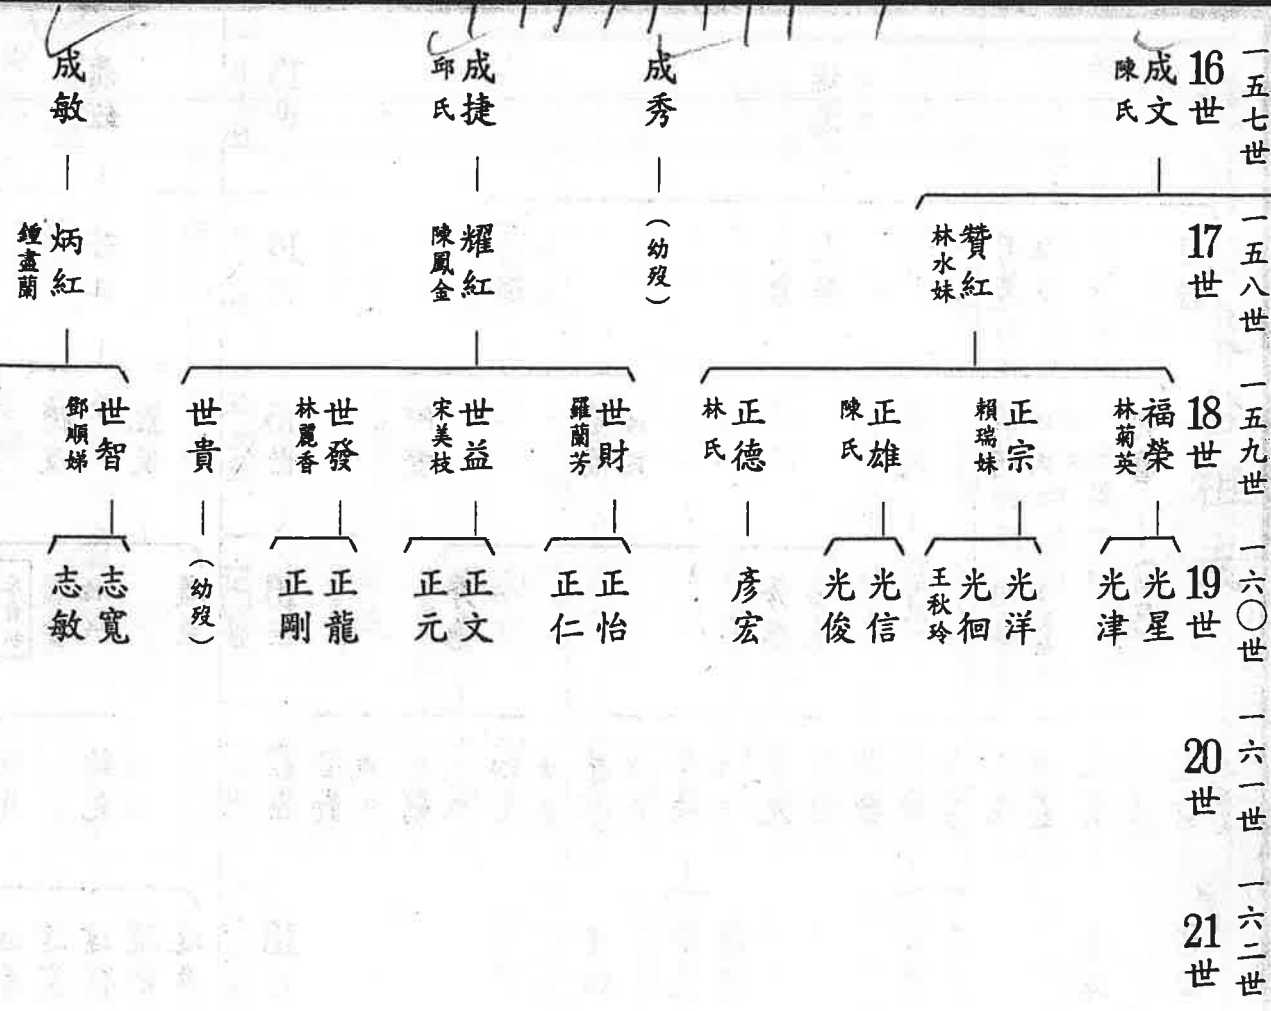 一五七世
16世
成文
陳氏
成秀
成捷
邱氏
成敏
一五八世
17世
贊紅
林水妹
(幼歿)
耀紅
陳鳳金
炳紅
鍾盡蘭
一五九世
18世
福榮
林菊英
正宗
賴瑞妹
正雄
陳氏
正德
林氏
世財
羅蘭芳
世益
宋美枝
世發
林麗香
世貴
世智
鄧順娣
一六〇世
19世
光星
光津
光洋
光徊
王秋玲
光信
光俊
彥宏
正怡
正仁
正文
正元
正龍
正剛
(幼歿)
志寬
志敏
一六一世
20世
一六二世
21世